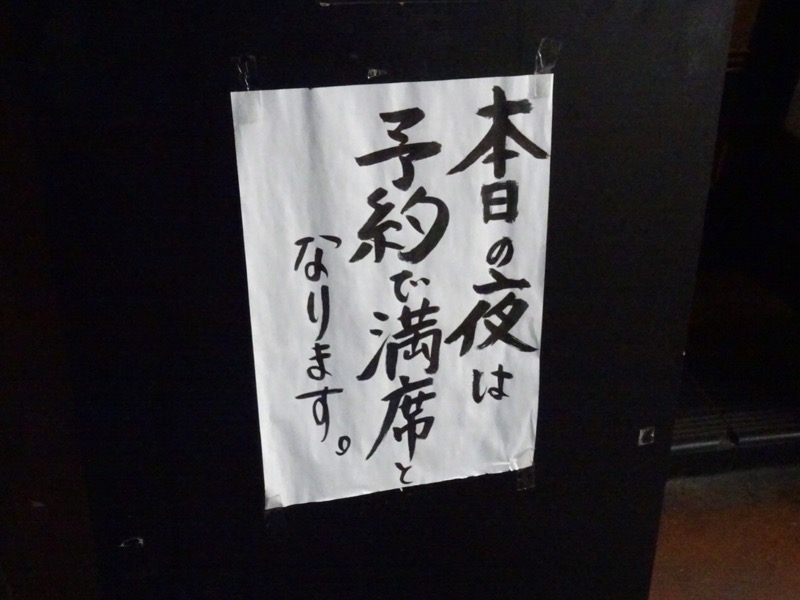 本日の夜は
予約で満席と
なります。